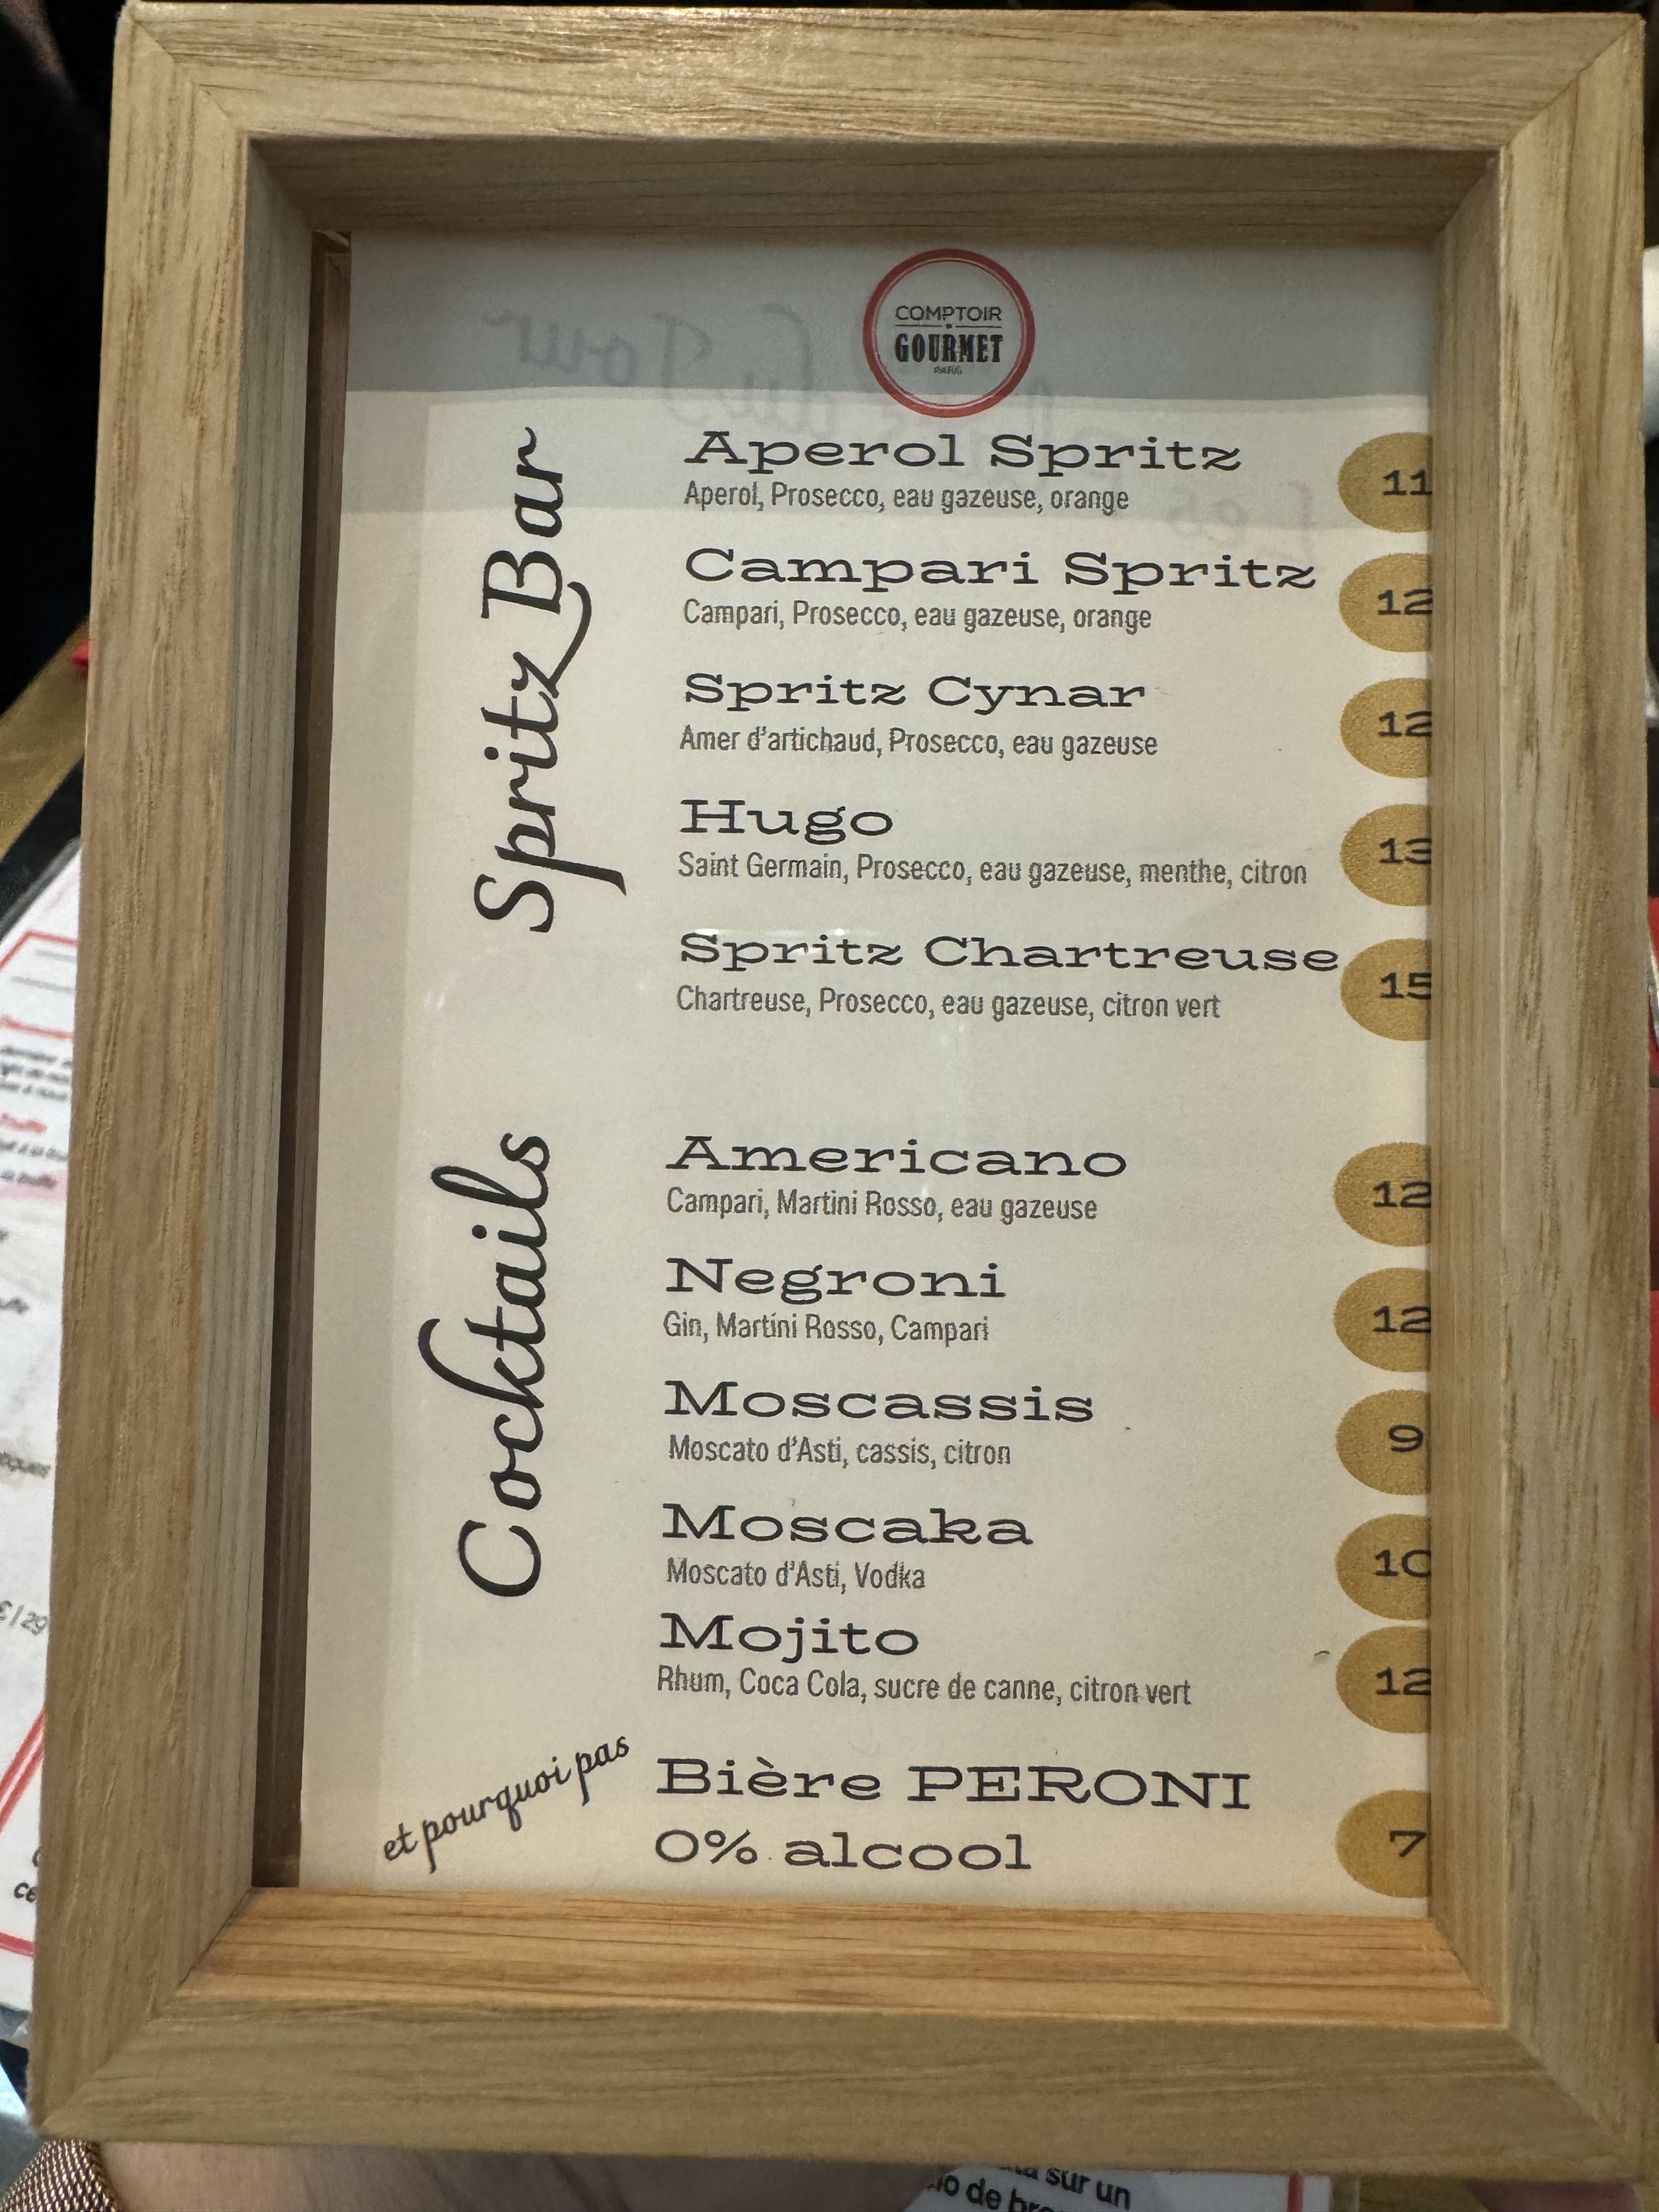 COMPTOIR
GOURMET
Spritz Bar
Aperol Spritz 11
Aperol, Prosecco, eau gazeuse, orange
Campari Spritz 12
Campari, Prosecco, eau gazeuse, orange
Spritz Cynar 12
Amer d'artichaud, Prosecco, eau gazeuse
Hugo 13
Saint Germain, Prosecco, eau gazeuse, menthe, citron
Spritz Chartreuse 15
Chartreuse, Prosecco, eau gazeuse, citron vert
Cocktails
Americano 12
Campari, Martini Rosso, eau gazeuse
Negroni 12
Gin, Martini Rosso, Campari
Moscassis 9
Moscato d'Asti, cassis, citron
Moscaka 10
Moscato d'Asti, Vodka
Mojito 12
Rhum, Coca Cola, sucre de canne, citron vert
et pourquoi pas
Bière PERONI
0% alcool 7
sur un
de